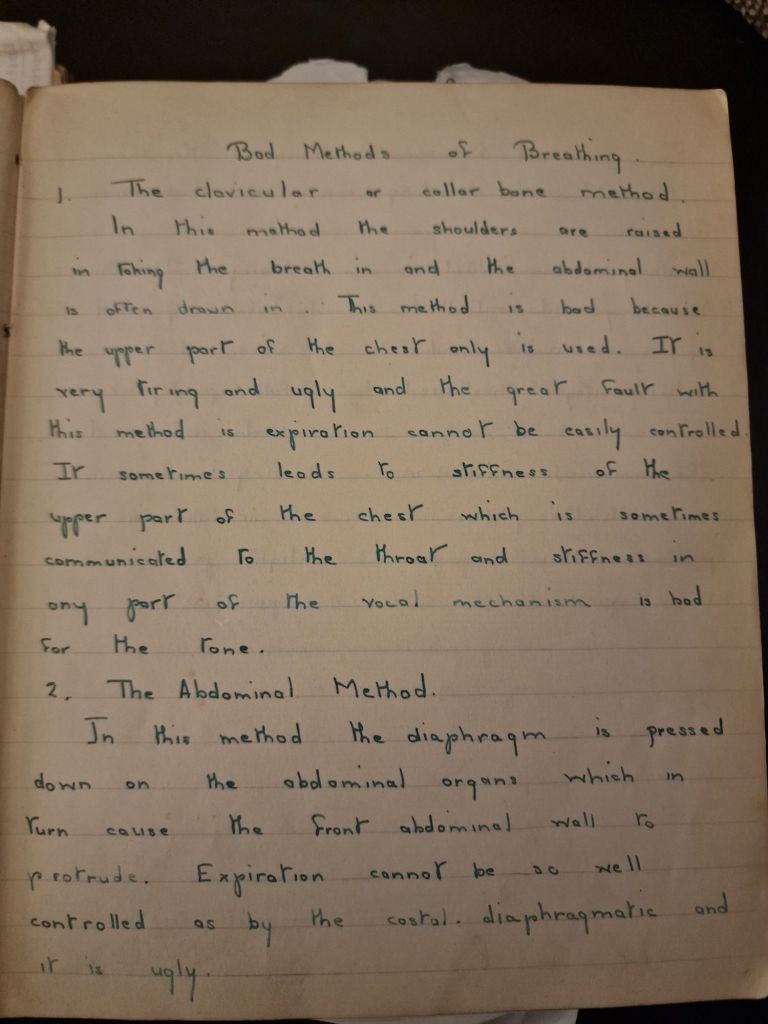 Bad Methods of Breathing.
1. The clavicular or collar bone method.
In this method the shoulders are raised
in taking the breath in and the abdominal wall
is often drawn in. This method is bad because
the upper part of the chest only is used. It is
very tiring and ugly and the great fault with
this method is expiration cannot be easily controlled.
It sometimes leads to stiffness of the
upper part of the chest which is sometimes
communicated to the throat and stiffness in
any part of the vocal mechanism is bad
for the tone.
2. The Abdominal Method.
In this method the diaphragm is pressed
down on the abdominal organs which in
turn cause the front abdominal wall to
protrude. Expiration cannot be so well
controlled as by the costal. diaphragmatic and
it is ugly.